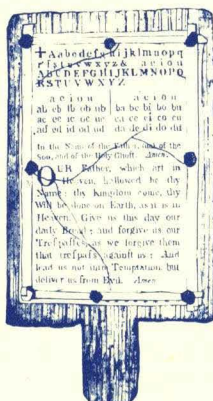 +Aabcdefghijklmnopq
rſstuvwxyz& aeiou
ABCDEFGHIJKLMNOPQ
RSTUVWXYZ
aeiou aeiou
ab eb ib ob ub ba be bi bo bu
ac ec ic oc uc ca ce ci co cu
ad ed id od ud da de di do du
In the Name of the Father, and of the
Son, and of the Holy Ghoſt. Amen.
OUR Father, which art in
Heaven, hallowed be thy
Name; thy kingdom come, thy
Will be done on Earth, as it is in
Heaven. Give us this day our
daily Bread; and forgive us our
Treſpaſſes, as we forgive them
that treſpaſs againſt us: And
lead us not into Temptation, but
deliver us from Evil. Amen.